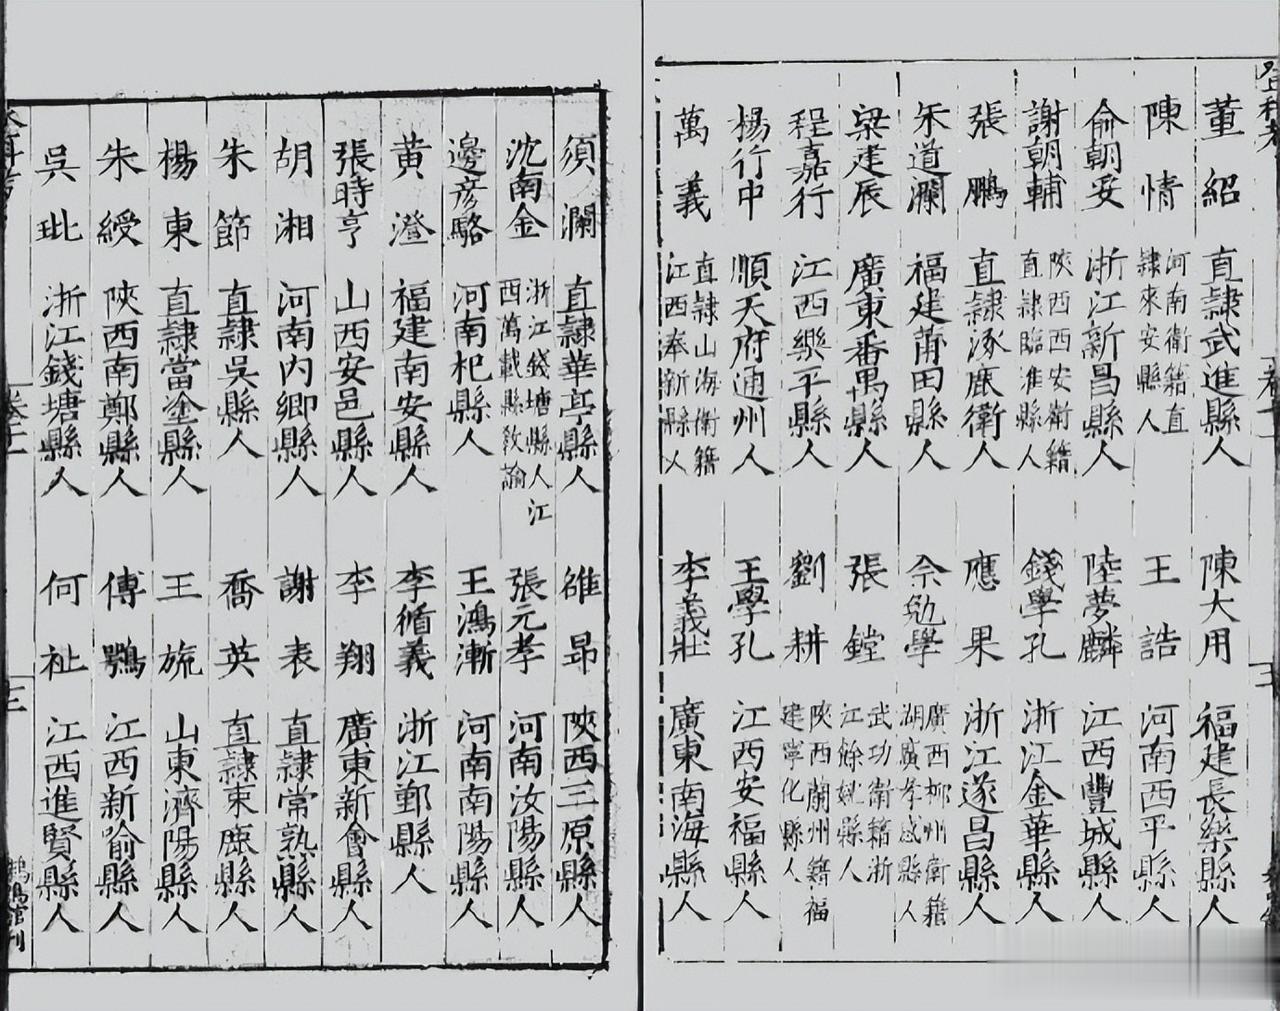 董紹 直隷武進縣人 陳大用 福建長樂縣人
陳情 河南衛籍直隷來安縣人 王誥 河南西平縣人
俞朝安 浙江新昌縣人 陸夢麟 江西豐城縣人
謝朝輔 陝西西安衛籍直隷臨淮縣人 錢學孔 浙江金華縣人
張鵬 直隷涿鹿衛人 應果 浙江遂昌縣人
朱道瀾 福建莆田縣人 佘勉學 廣西柳州衛籍湖廣孝感縣人
梁建辰 廣東番禺縣人 張鏜 武功衛籍浙江餘姚縣人
程嘉行 江西樂平縣人 劉耕 陝西蘭州籍福建寧化縣人
楊行中 順天府通州人 王學孔 江西安福縣人
萬義 直隷山海衛籍江西奉新縣人 李義壯 廣東南海縣人
須瀾 直隷華亭縣人 雒昻 陝西三原縣人
沈南金 浙江錢塘縣人江西萬載縣敎諭 張元孝 河南汝陽縣人
邊彦駱 河南杞縣人 王鴻漸 河南南陽縣人
黄澄 福建南安縣人 李循義 浙江鄞縣人
張時亨 山西安邑縣人 李翔 廣東新會縣人
胡湘 河南内鄉縣人 謝表 直隷常熟縣人
朱節 直隷吳縣人 喬英 直隷束鹿縣人
楊東 直隷當塗縣人 王旒 山東濟陽縣人
朱綬 陝西南鄭縣人 傅鶚 江西新喻縣人
吳玭 浙江錢塘縣人 何祉 江西進賢縣人
卷十一 三